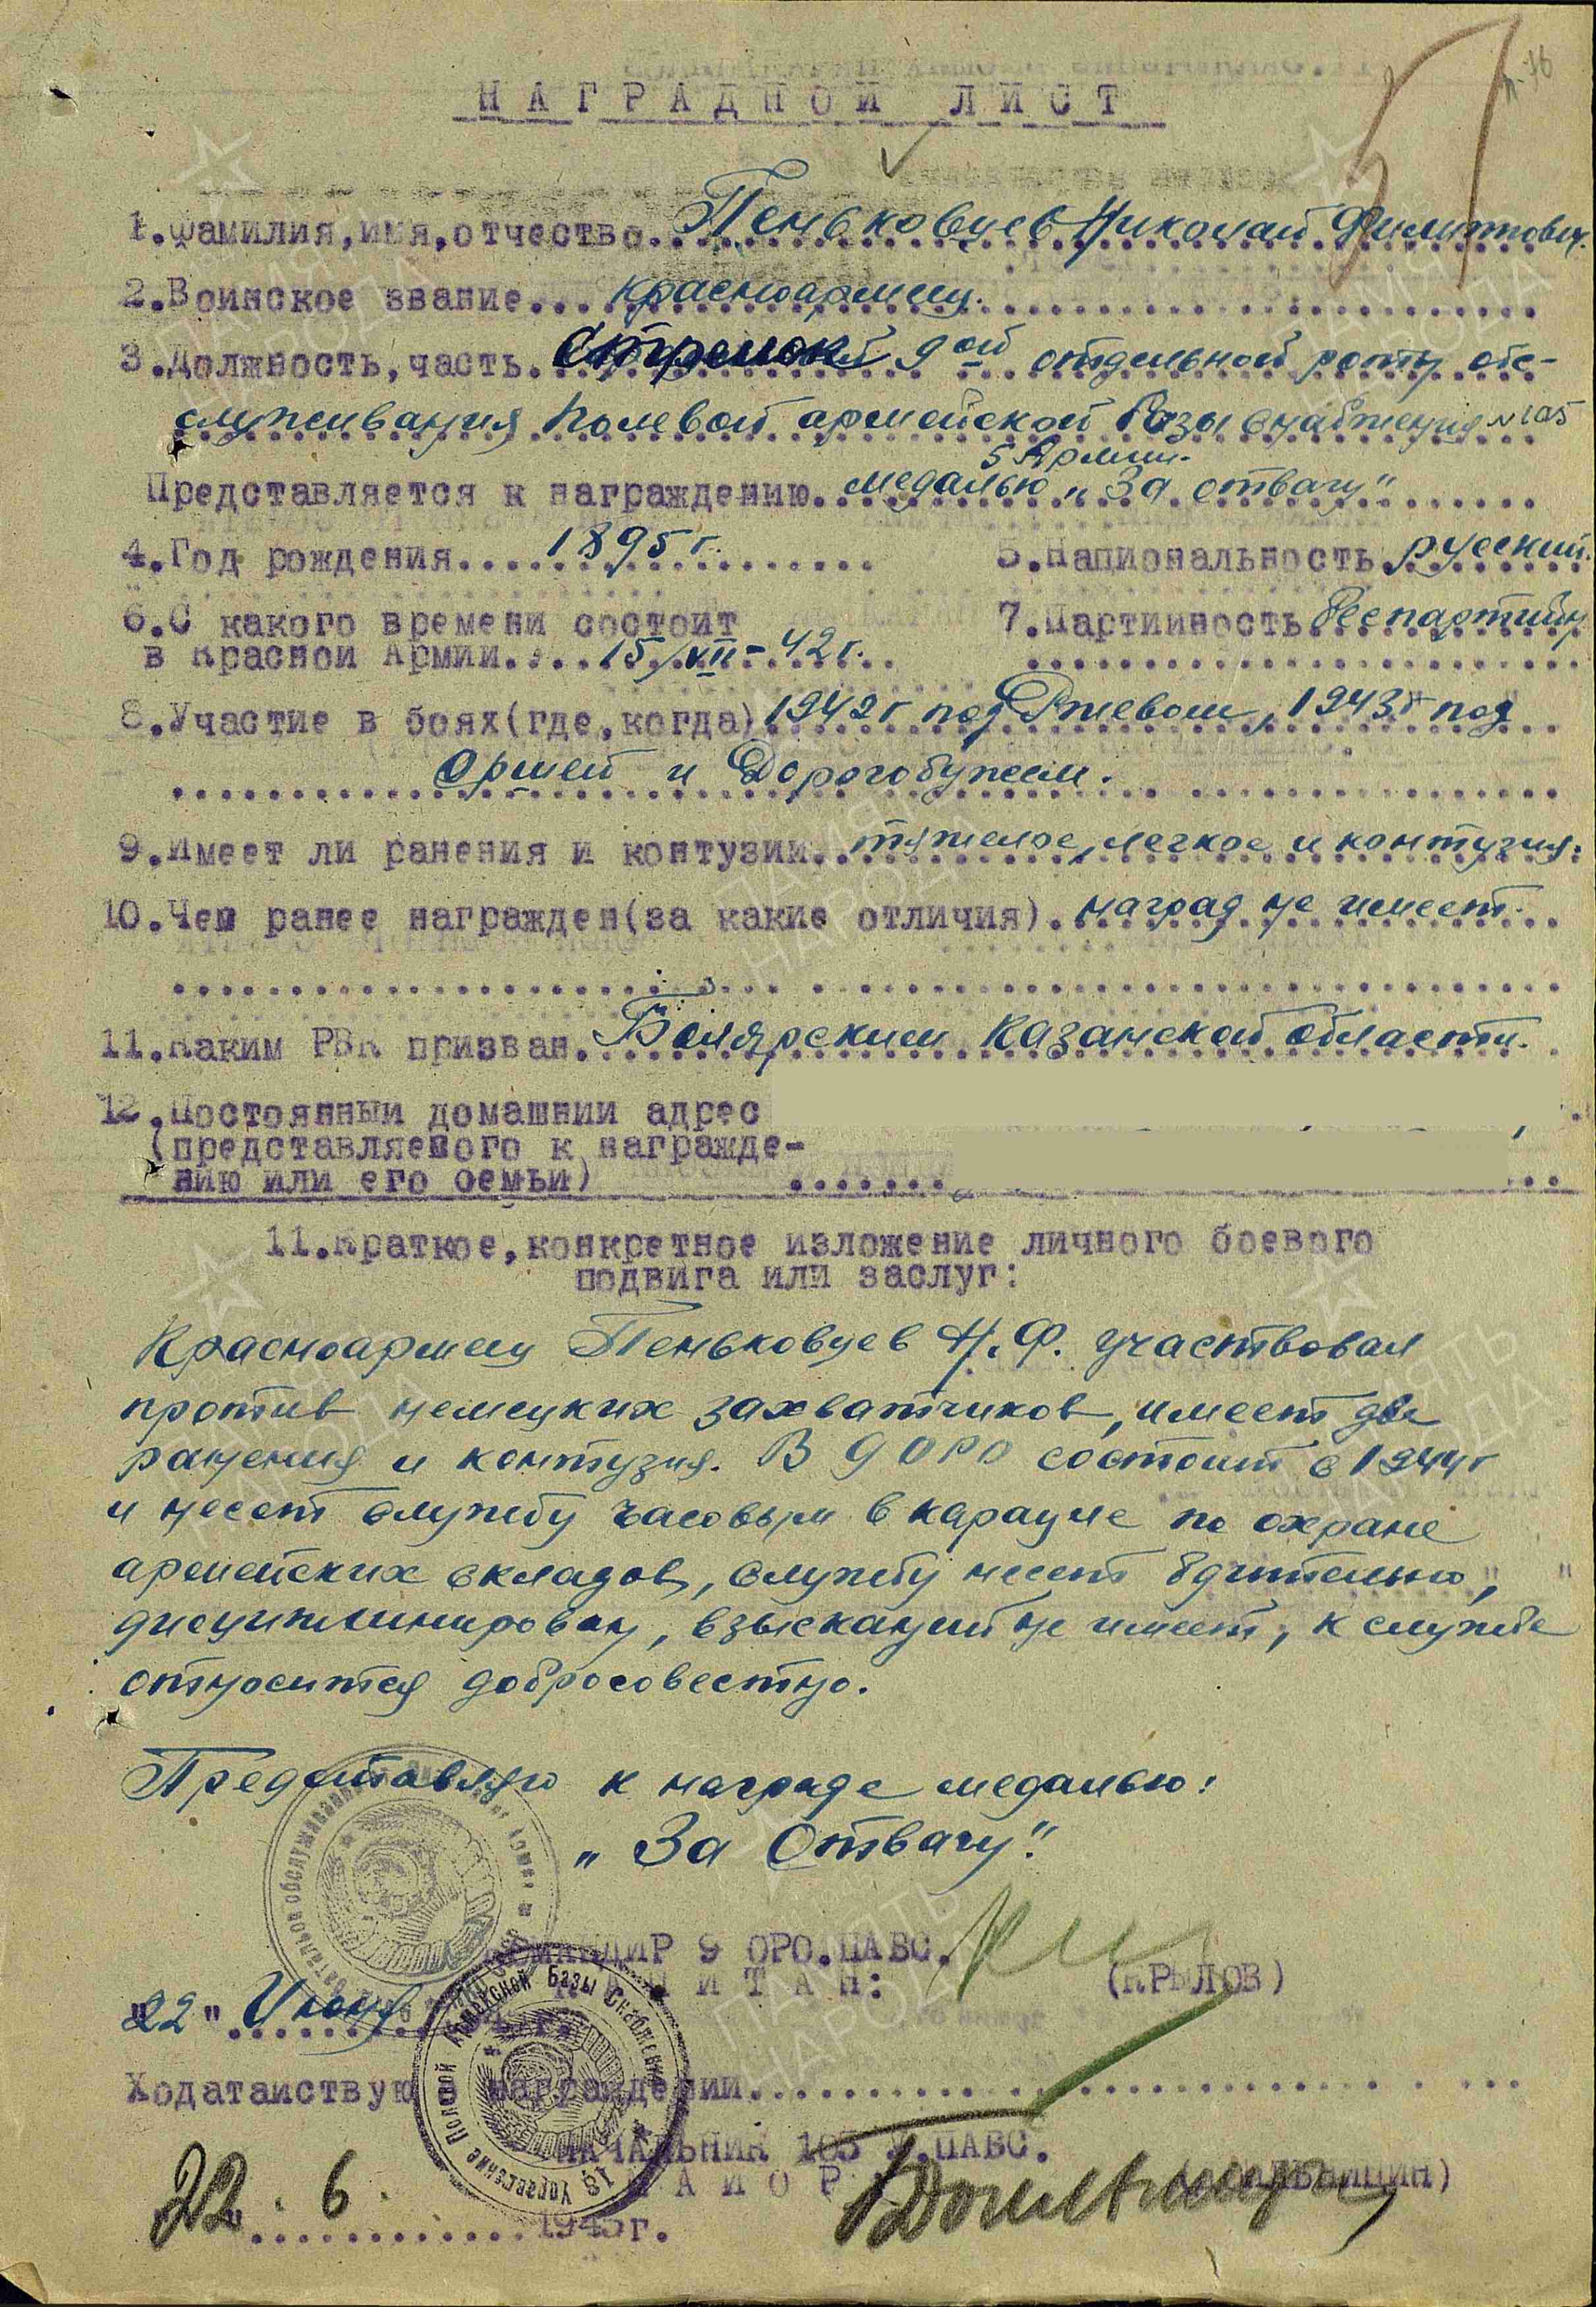 НАГРАДНОЙ ЛИСТ
1.Фамилия,имя,отчество. Пеньковцев Николай Филиппович.
2.Воинское звание... красноармеец.
3.Должность,часть. Стрелок 9ой отдельной роты обс-
служивания Полевой армейской Базы снабжения №105
5 Армии.
Представляется к награждению. медалью "За отвагу"
4.Год рождения.... 1895 г. 5.Национальность. русский.
6.С какого времени состоит 7.Партийность. беспартийн
в Красной Армии... 15/VII-42 г.
8.Участие в боях(где,когда) 1942 г под Ржевом, 1943 г под
Оршей и Дорогобужем.
9.Имеет ли ранения и контузии. тяжелое, легкое и контузия.
10.Чем ранее награжден(за какие отличия). наград не имеет.
11.Каким РВК призван. Казанской области.
12.Постоянный домашний адрес
(представляемого к награжде-
нию или его семьи)
11.Краткое,конкретное изложение личного боевого
подвига или заслуг:
Красноармеец Пеньковцев Н.Ф. участвовал
против немецких захватчиков, имеет два
ранения и контузия. В 9 ОРО состоит с 1944 г
и несет службу часовым в карауле по охране
армейских складов, службу несет бдительно,
дисциплинирован, взысканий не имеет, к службе
относится добросовестно.
Представляю к награде медалью:
"За Отвагу".
КОМАНДИР 9 ОРО.ПАБС.
КАПИТАН: (КРЫЛОВ)
"22" Июня
Ходатайствую о награждении
НАЧАЛЬНИК 105 У.ПАБС.
МАЙОР
22.6. 1945г.
Управление Полевой Армейской Базы Снабжения